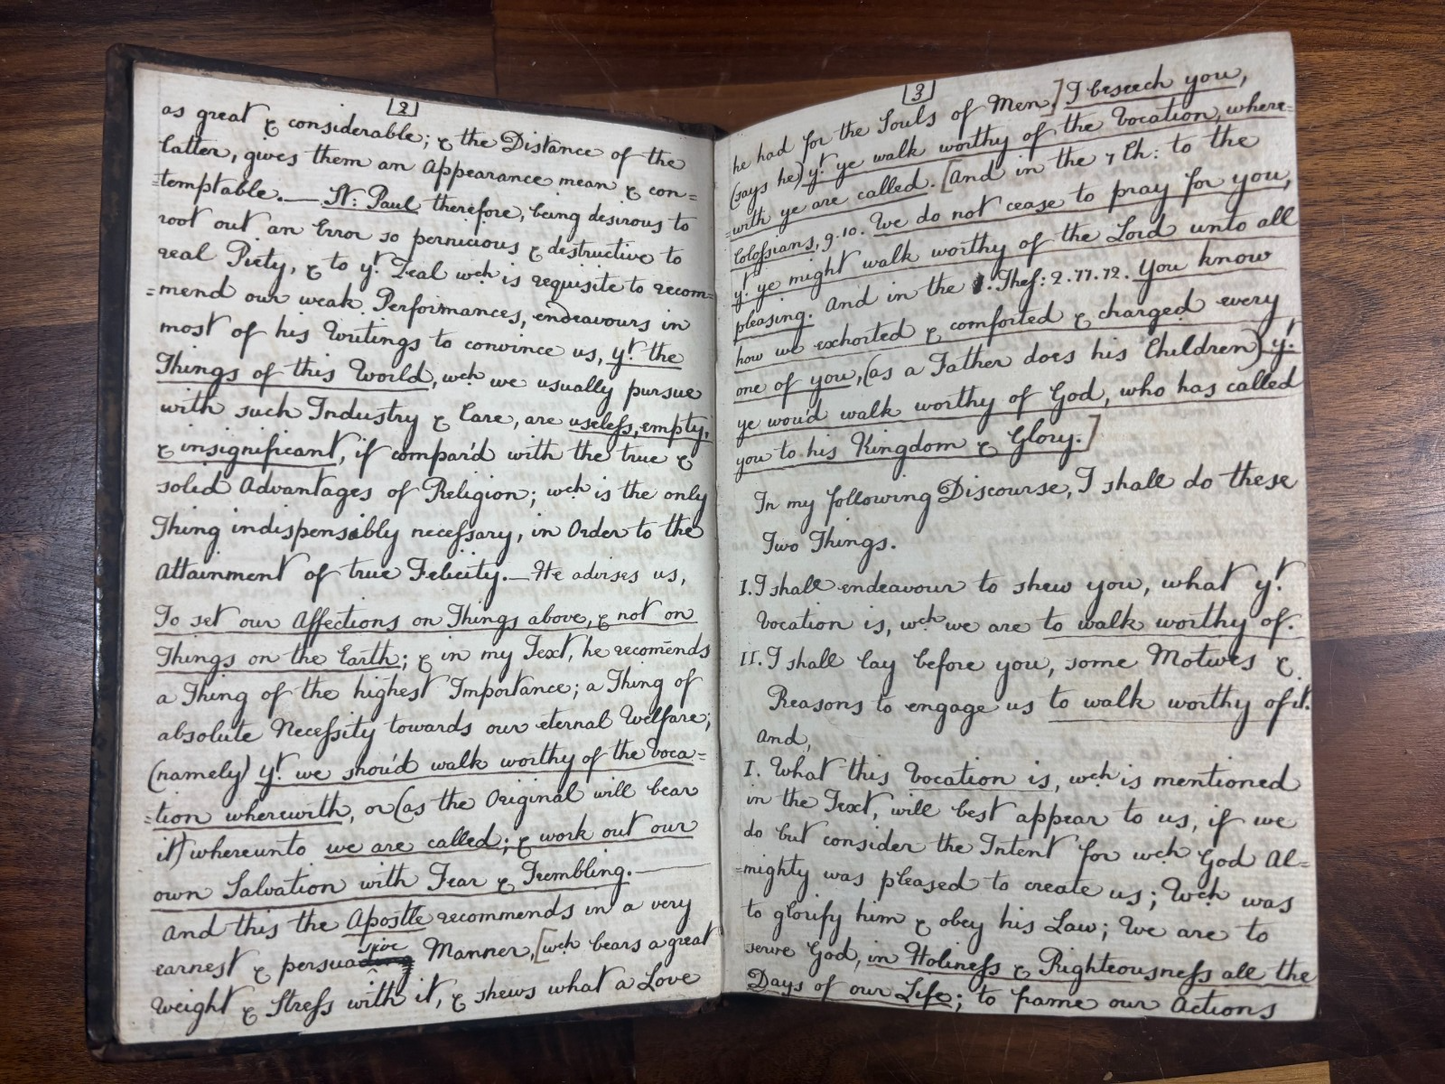 [2]
as great & considerable; & the Distance of the
latter, gives them an Appearance mean & con=
=temptable.— St: Paul therefore, being desirous to
root out an Error so pernicious & destructive to
real Piety, & to yt. Zeal wch is requisite to recom=
=mend our weak Performances, endeavours in
most of his Writings to convince us, yt. the
Things of this World, wch we usually pursue
with such Industry & Care, are useleſs, empty,
& insignificant, if compar'd with the true &
solid Advantages of Religion; wch is the only
Thing indispensibly neceſsary, in Order to the
Attainment of true Felicity.—He advises us,
To set our Affections on Things above, & not on
Things on the Earth; & in my Text, he recom̄ends
a Thing of the highest Importance; a Thing of
absolute Neceſsity towards our eternal Welfare;
(namely) yt. we shou'd walk worthy of the Voca=
=tion wherewith, or (as the Original will bear
it) whereunto we are called; & work out our
own Salvation with Fear & Trembling.—
And this the Apostle recommends in a very
sive
earnest & persua Manner, [wch bears a great
Weight & Streſs with it, & shews what a Love
[3]
he had for the Souls of Men.] I beseech you,
(says he) yt. ye walk worthy of the Vocation, where=
=with ye are called. [And in the 1 Ch: to the
Coloſsians, 9. 10. We do not cease to pray for you,
yt. ye might walk worthy of the Lord unto all
pleasing. And in the 1. Theſ: 2. 11. 12. You know
how we exhorted & comforted & charged every
one of you, (as a Father does his Children) yt.
ye wou'd walk worthy of God, who has called
you to his Kingdom & Glory.]
In my following Discourse, I shall do these
Two Things.
I. I shall endeavour to shew you, what yt.
Vocation is, wch we are to walk worthy of.
II. I shall lay before you, some Motives &
Reasons to engage us to walk worthy of it.
And,
I. What this Vocation is, wch is mentioned
in the Text, will best appear to us, if we
do but consider the Intent for wch God Al=
=mighty was pleased to create us; Wch was
to glorify him & obey his Law; We are to
serve God, in Holineſs & Righteousneſs all the
Days of our Life; to frame our Actions